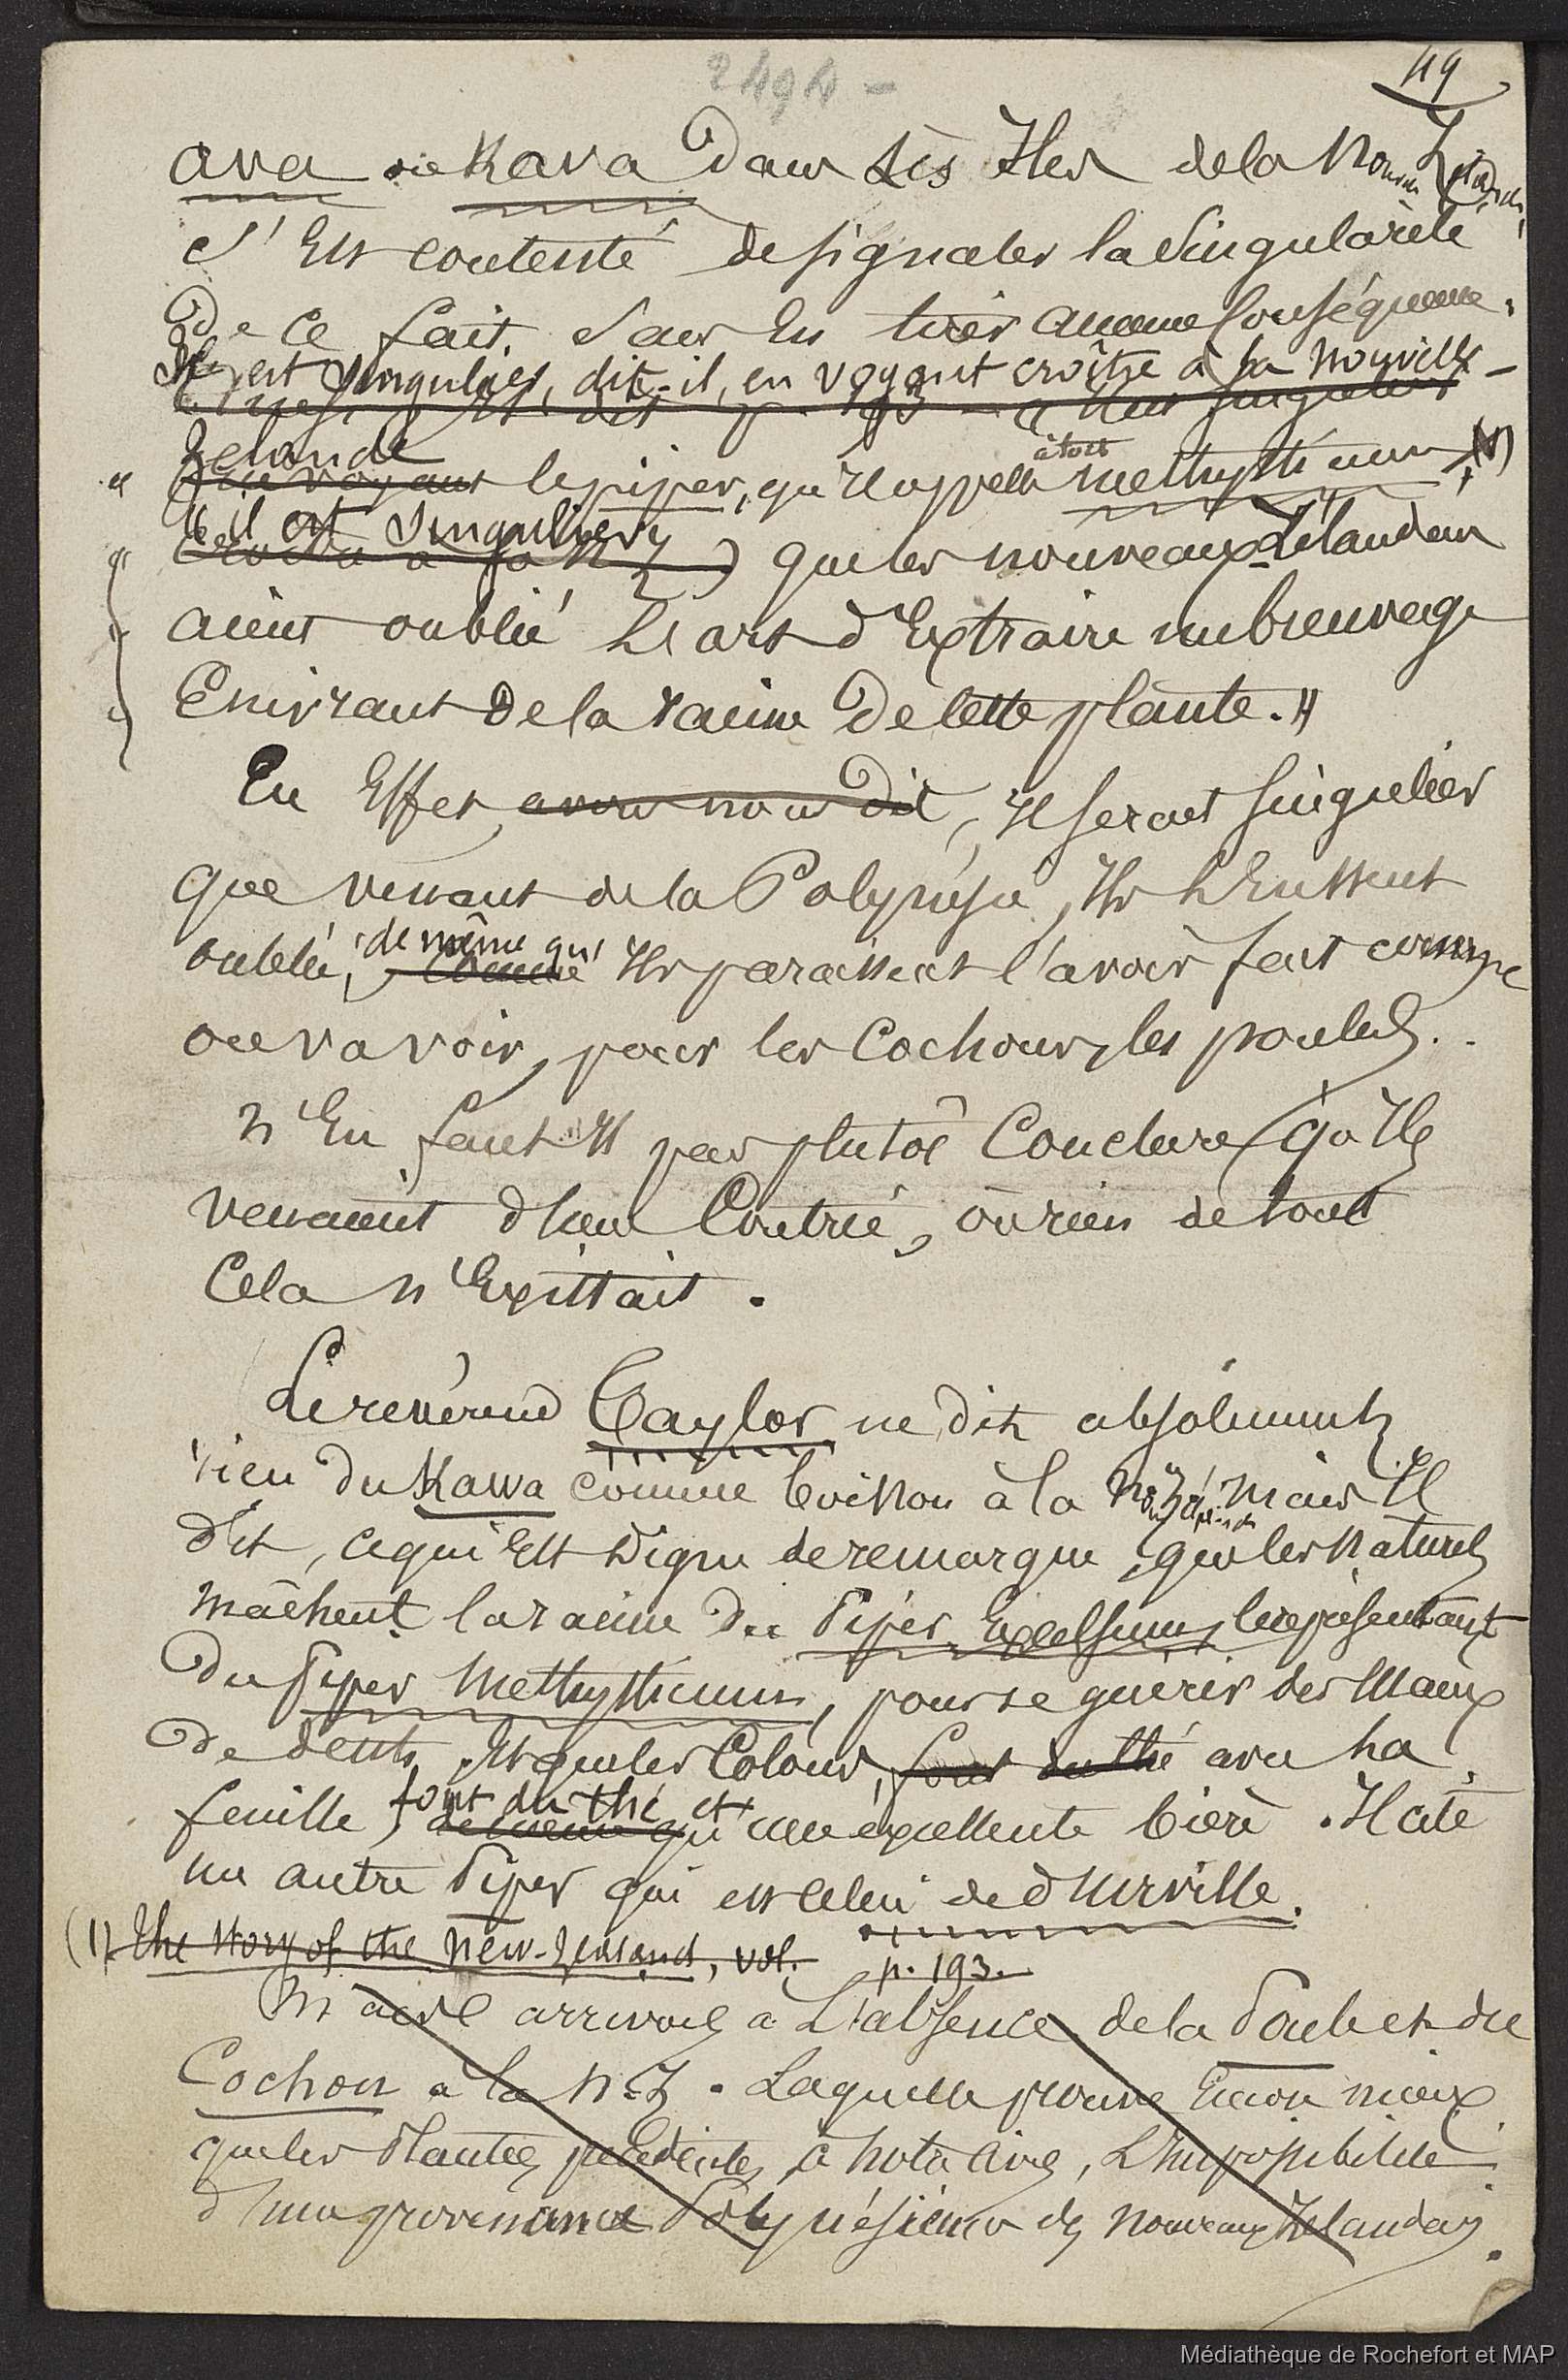 2494 -
49
ava ou Kava dans les Iles de la Nouvelle Zélande,
s'est contenté de signaler la singularité
de ce fait, sans en tirer aucune conséquence.
Il est singulier, dit-il, en voyant croître à la Nouvelle-
Zélande
" en voyant le piper, qu'il appelle à tort methysticum, (1)
" il est singulier
" croître à la N Z) que les nouveaux Zélandais
aient oublié l'art d'extraire un breuvage
enivrant de la racine de cette plante. "
En effet, avons nous dit, il serait singulier
que venant de la Polynésie, ils l'eussent
oublié, de même qu' comme ils paraissent l'avoir fait comme
on va voir, pour les cochons, les poules..
N'en faut il pas plutôt conclure qu'ils
venaient d'une contrée, où rien de tout
cela n'existait.
Le révérend Taylor ne dit absolument
rien du Kawa comme boisson à la Nouv. Zélande mais il
dit, ce qui est digne de remarque, que les naturels
mâchent la racine du Piper Excelsum, le représentant
du Piper Methysticum, pour se guérir des maux
de dents, et que les Colons, font du thé avec la
feuille, font du thé et de même qu' une excellente bière. Il cite
un autre Piper qui est celui de d'Urville.
(1) the story of the New-Zealand, vol. p. 193.
M arrivons à l'absence de la Poule et du
Cochon à la N.Z. Laquelle prouve encore mieux
que les Plantes précédentes, à notre avis, l'impossibilité
d'une provenance Polynésienne des Nouveaux Zélandais.
Médiathèque de Rochefort et MAP